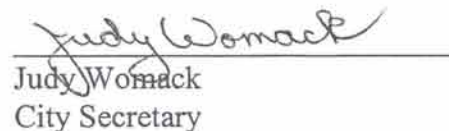 Judy Womack
Judy Womack
City Secretary